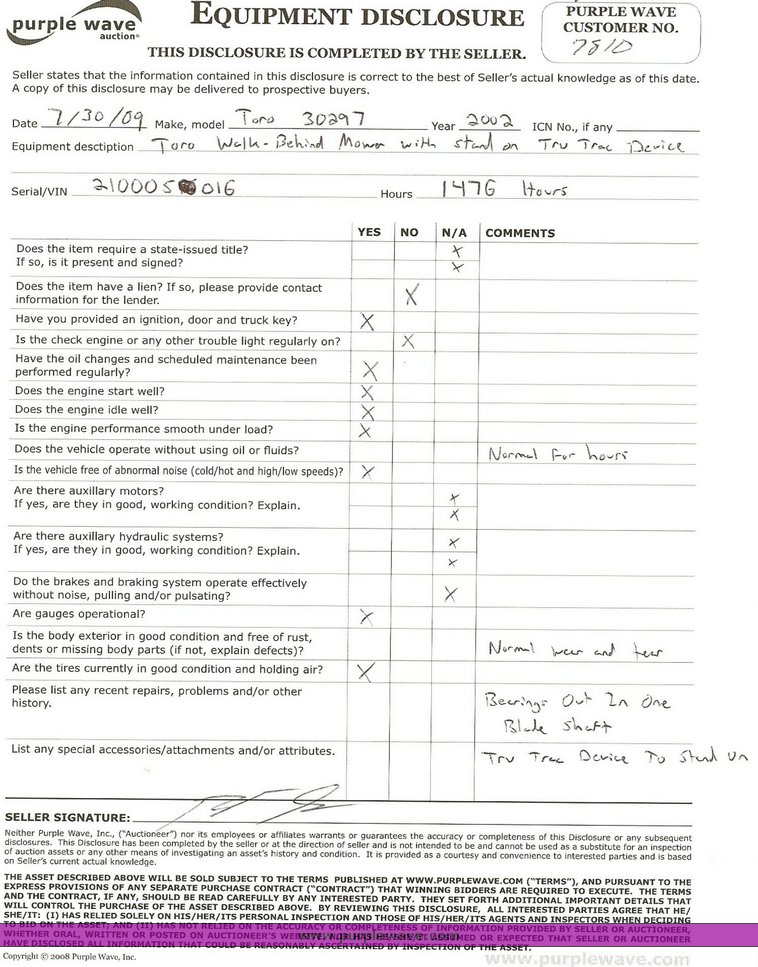 purple wave
auction®
EQUIPMENT DISCLOSURE
PURPLE WAVE
CUSTOMER NO.
7810
THIS DISCLOSURE IS COMPLETED BY THE SELLER.
Seller states that the information contained in this disclosure is correct to the best of Seller's actual knowledge as of this date.
A copy of this disclosure may be delivered to prospective buyers.
Date 7/30/09 Make, model Toro 30297 Year 2002 ICN No., if any
Equipment desctiption Toro Walk-Behind Mower with stand on Tru Trac Device
Serial/VIN 210005 016 Hours 1476 Hours
YES NO N/A COMMENTS
Does the item require a state-issued title? X
If so, is it present and signed? X
Does the item have a lien? If so, please provide contact
information for the lender. X
Have you provided an ignition, door and truck key? X
Is the check engine or any other trouble light regularly on? X
Have the oil changes and scheduled maintenance been
performed regularly? X
Does the engine start well? X
Does the engine idle well? X
Is the engine performance smooth under load? X
Does the vehicle operate without using oil or fluids? Normal For hours
Is the vehicle free of abnormal noise (cold/hot and high/low speeds)? X
Are there auxillary motors? X
If yes, are they in good, working condition? Explain. X
Are there auxillary hydraulic systems? X
If yes, are they in good, working condition? Explain. X
Do the brakes and braking system operate effectively
without noise, pulling and/or pulsating? X
Are gauges operational? X
Is the body exterior in good condition and free of rust,
dents or missing body parts (if not, explain defects)? Normal wear and tear
Are the tires currently in good condition and holding air? X
Please list any recent repairs, problems and/or other
history.
Bearings Out In One
Blade Shaft
List any special accessories/attachments and/or attributes. Tru Trac Device To Stand On
SELLER SIGNATURE:
Neither Purple Wave, Inc., ("Auctioneer") nor its employees or affiliates warrants or guarantees the accuracy or completeness of this Disclosure or any subsequent
disclosures. This Disclosure has been completed by the seller or at the direction of seller and is not intended to and cannot be used as a substitute for an inspection
of auction assets or any other means of investigating an asset's history and condition. It is provided as a courtesy and convenience to interested parties and is based
on Seller's current actual knowledge.
THE ASSET DESCRIBED ABOVE WILL BE SOLD SUBJECT TO THE TERMS PUBLISHED AT WWW.PURPLEWAVE.COM ("TERMS"), AND PURSUANT TO THE
EXPRESS PROVISIONS OF ANY SEPARATE PURCHASE CONTRACT ("CONTRACT") THAT WINNING BIDDERS ARE REQUIRED TO EXECUTE. THE TERMS
AND THE CONTRACT, IF ANY, SHOULD BE READ CAREFULLY BY ANY INTERESTED PARTY. THEY SET FORTH ADDITIONAL IMPORTANT DETAILS THAT
WILL CONTROL THE PURCHASE OF THE ASSET DESCRIBED ABOVE. BY REVIEWING THIS DISCLOSURE, ALL INTERESTED PARTIES AGREE THAT HE/
SHE/IT: (I) HAS RELIED SOLELY ON HIS/HER/ITS PERSONAL INSPECTION AND THOSE OF HIS/HER/ITS AGENTS AND INSPECTORS WHEN DECIDING
TO BID ON THE ASSET; AND (II) HAS NOT RELIED ON THE ACCURACY OR COMPLETENESS OF INFORMATION PROVIDED BY SELLER OR AUCTIONEER,
WHETHER ORAL, WRITTEN OR POSTED ON AUCTIONEER'S OR EXPECTED THAT SELLER OR AUCTIONEER
HAVE DISCLOSED ALL INFORMATION THAT COULD BE REASONABLY ASCERTAINED BY INSPECTION OF THE ASSET.
Copyright © 2008 Purple Wave, Inc.
www.purplewave.com